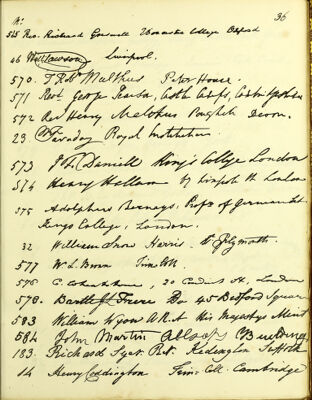 No. 36
565 Rev. Richard Greswell Worcester College Oxford
46 Will Lawson Liverpool.
570. T. Robt Malthus Peter House.
571 Revd George
572 Rev Henry Devon.
23. Faraday Royal Institution.
573 J. F. Daniell King's College London
574 Henry Hallam 67 Wimpole St London
575 Adolphus Bernays, Profr of German Lit.
Kings College, London.
32 William Snow Harris. Plymouth.
577 W. L. Brown Trin Coll.
576 C. 20 Conduit St, London
578. Bartle J. Frere Do 45 Bedford Square
583 William Wyon A.R.A His Majestys Mint
584 John Martin Allsop's Buildings
183. Richard Rev. Kedington Suffolk
14 Henry Coddington Trin: Coll. Cambridge